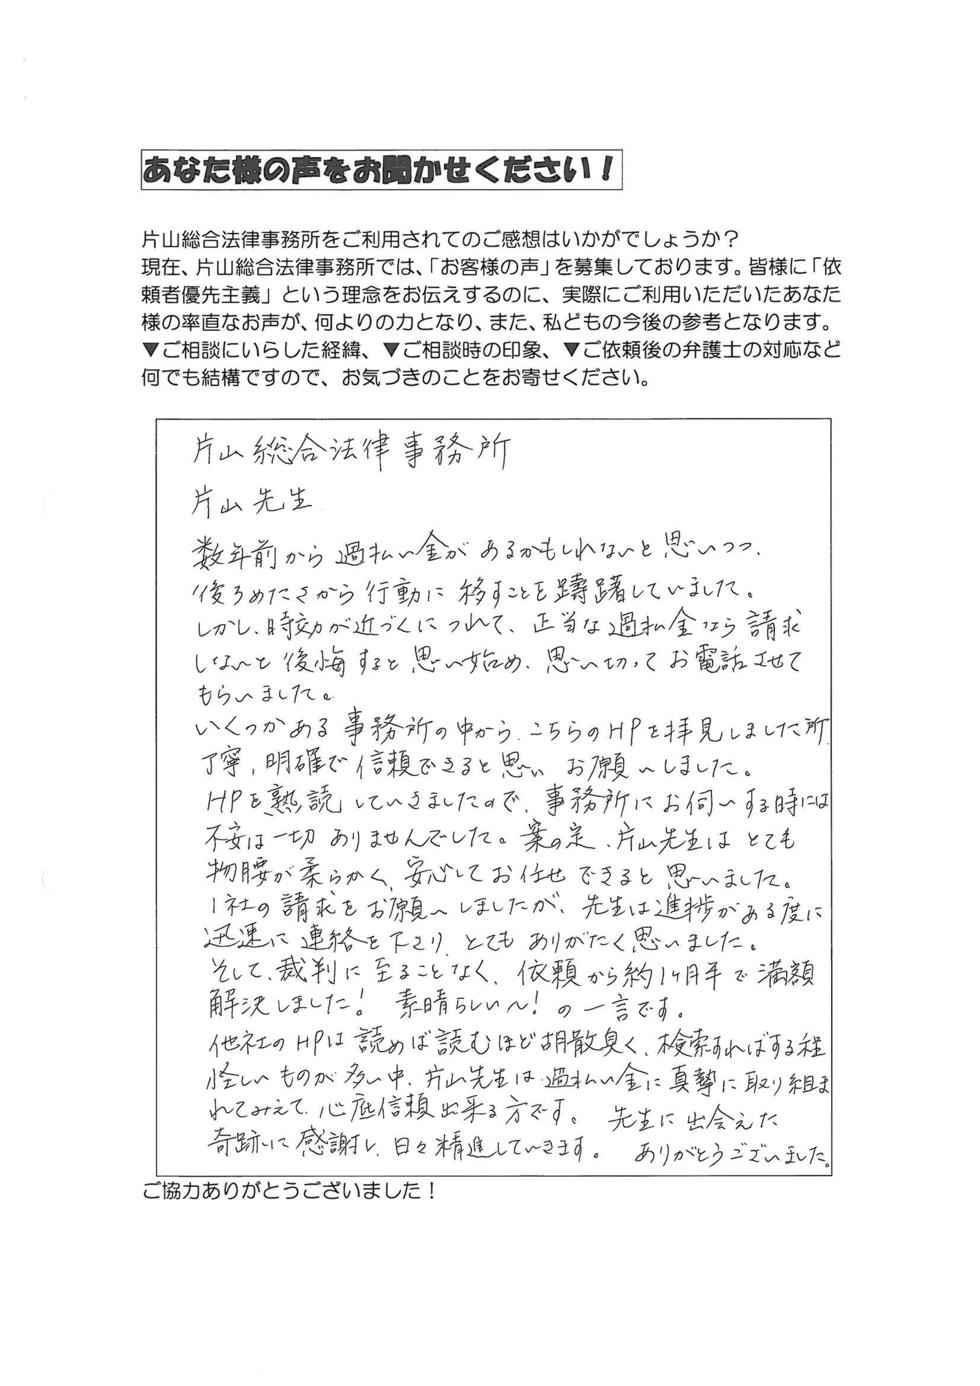 あなた様の声をお聞かせください！
片山総合法律事務所をご利用されてのご感想はいかがでしょうか？
現在、片山総合法律事務所では、「お客様の声」を募集しております。皆様に「依
頼者優先主義」という理念をお伝えするのに、実際にご利用いただいたあなた
様の率直なお声が、何よりの力となり、また、私どもの今後の参考となります。
▼ご相談にいらした経緯、▼ご相談時の印象、▼ご依頼後の弁護士の対応など
何でも結構ですので、お気づきのことをお寄せください。
片山総合法律事務所
片山先生
数年前から過払い金があるかもしれないと思いつつ、
後ろめたさから行動に移すことを躊躇していました。
しかし、時効が近づくにつれて、正当な過払金なら請求
しないと後悔すると思い始め、思い切ってお電話させて
もらいました。
いくつかある事務所の中から、こちらのHPを拝見しました所、
丁寧、明確で信頼できると思い お願いしました。
HPを熟読していきましたので、事務所にお伺いする時には
不安は一切ありませんでした。案の定、片山先生はとても
物腰が柔らかく、安心してお任せできると思いました。
1社の請求をお願いしましたが、先生は進捗がある度に
迅速に連絡を下さり、とてもありがたく思いました。
そして、裁判に至ることなく、依頼から約1ケ月半で満額
解決しました！ 素晴らしい〜！の一言です。
他社のHPは読めば読むほど胡散臭く、検索すればする程
怪しいものが多い中、片山先生は過払い金に真摯に取り組ま
れてみえて、心底信頼出来る方です。 先生に出会えた
奇跡に感謝し、日々精進していきます。 ありがとうございました。
ご協力ありがとうございました！